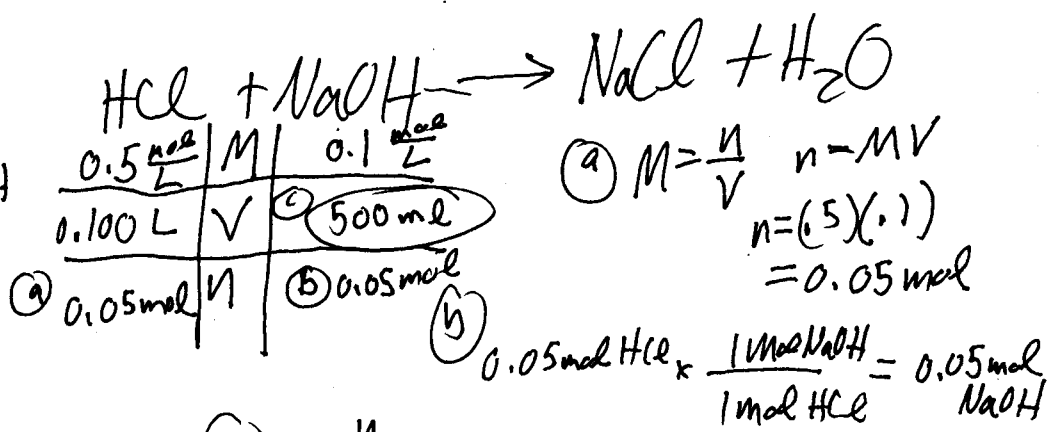 HCl + NaOH → NaCl + H₂O
0.5 mol/L | M | 0.1 mol/L
0.100 L | V | (c) 500 ml
(a) 0.05 mol | n | (b) 0.05 mol
(a) M = n/V n = MV
n = (.5)(.1)
= 0.05 mol
(b) 0.05 mol HCl x 1 mol NaOH / 1 mol HCl = 0.05 mol NaOH